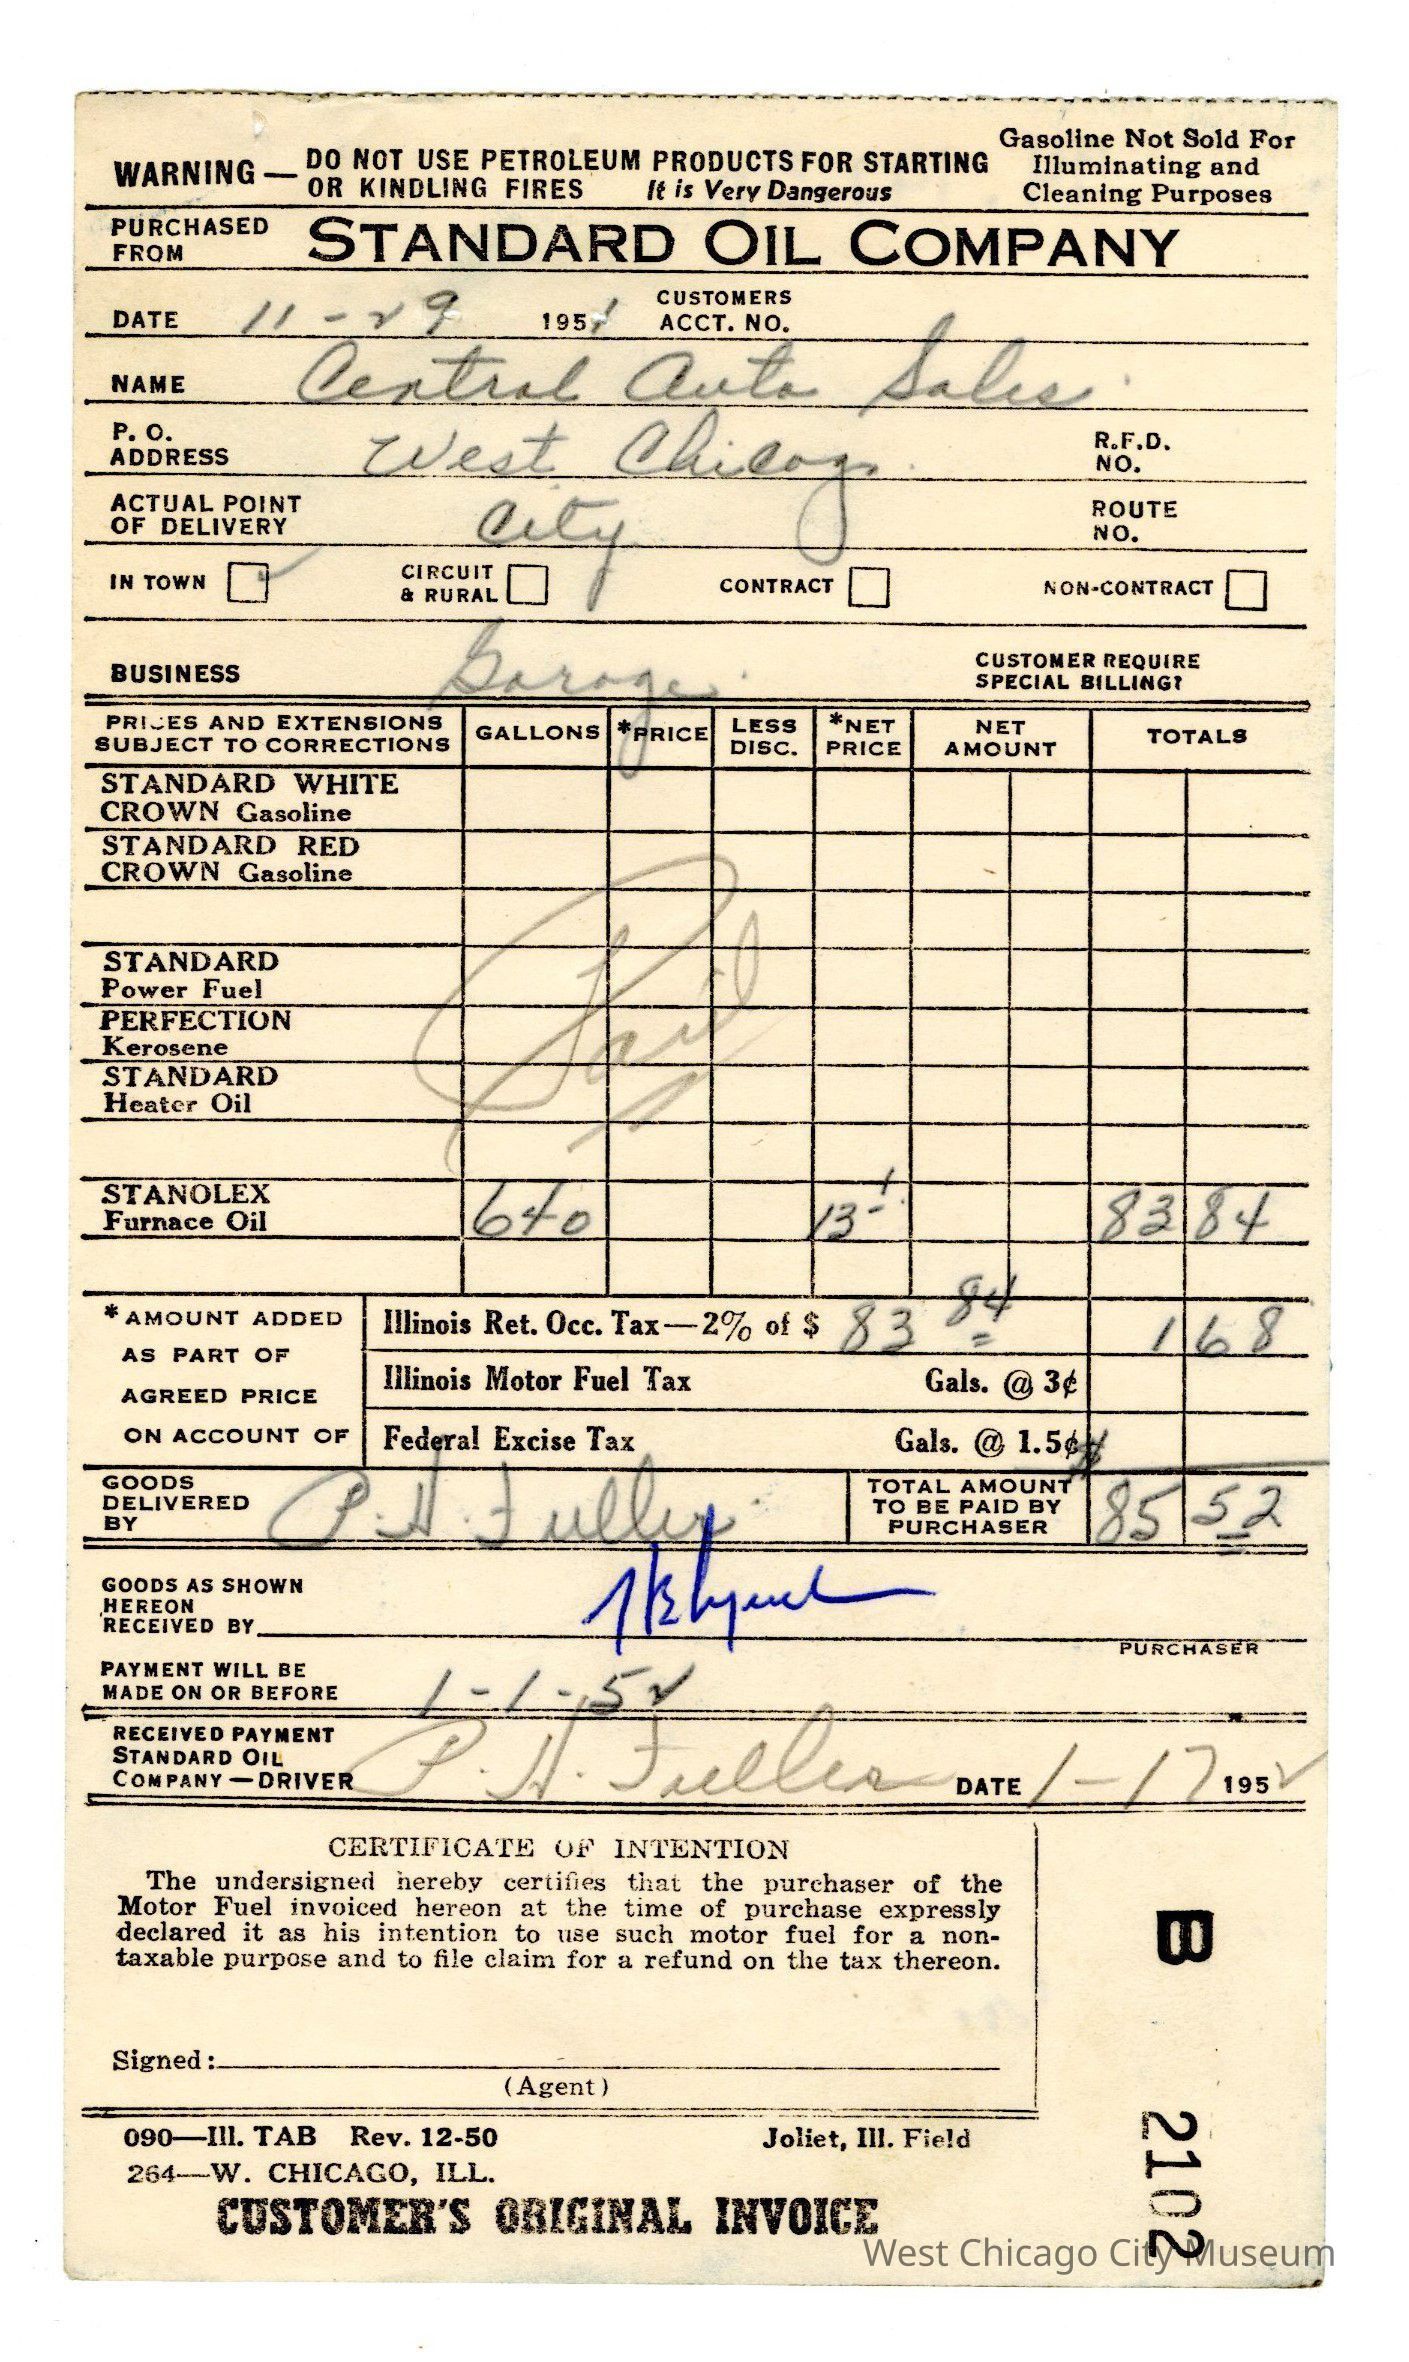 WARNING— DO NOT USE PETROLEUM PRODUCTS FOR STARTING
OR KINDLING FIRES It is Very Dangerous
Gasoline Not Sold For
Illuminating and
Cleaning Purposes
PURCHASED
FROM
STANDARD OIL COMPANY
DATE 11-29 1951 CUSTOMERS
ACCT. NO.
NAME Central Auto Sales
P. O.
ADDRESS West Chicago R.F.D.
NO.
ACTUAL POINT
OF DELIVERY City ROUTE
NO.
IN TOWN CIRCUIT
& RURAL CONTRACT NON-CONTRACT
BUSINESS Garage CUSTOMER REQUIRE
SPECIAL BILLING?
PRICES AND EXTENSIONS
SUBJECT TO CORRECTIONS
GALLONS *PRICE LESS
DISC. *NET
PRICE NET
AMOUNT TOTALS
STANDARD WHITE
CROWN Gasoline
STANDARD RED
CROWN Gasoline
STANDARD
Power Fuel
PERFECTION
Kerosene
STANDARD
Heater Oil
Paid
STANOLEX
Furnace Oil 640 13-1 83 84
*AMOUNT ADDED
AS PART OF
AGREED PRICE
ON ACCOUNT OF
Illinois Ret. Occ. Tax—2% of $ 83 84 1 68
Illinois Motor Fuel Tax Gals. @ 3¢
Federal Excise Tax Gals. @ 1.5¢
GOODS
DELIVERED
BY P. H. Fuller
TOTAL AMOUNT
TO BE PAID BY
PURCHASER 85 52
GOODS AS SHOWN
HEREON
RECEIVED BY
PURCHASER
PAYMENT WILL BE
MADE ON OR BEFORE 1-1-52
RECEIVED PAYMENT
STANDARD OIL
COMPANY—DRIVER P. H. Fuller DATE 1-17 1952
CERTIFICATE OF INTENTION
The undersigned hereby certifies that the purchaser of the
Motor Fuel invoiced hereon at the time of purchase expressly
declared it as his intention to use such motor fuel for a non-
taxable purpose and to file claim for a refund on the tax thereon.
Signed:
(Agent)
B 2102
090—Ill. TAB Rev. 12-50 Joliet, Ill. Field
264—W. CHICAGO, ILL.
CUSTOMER'S ORIGINAL INVOICE
West Chicago City Museum